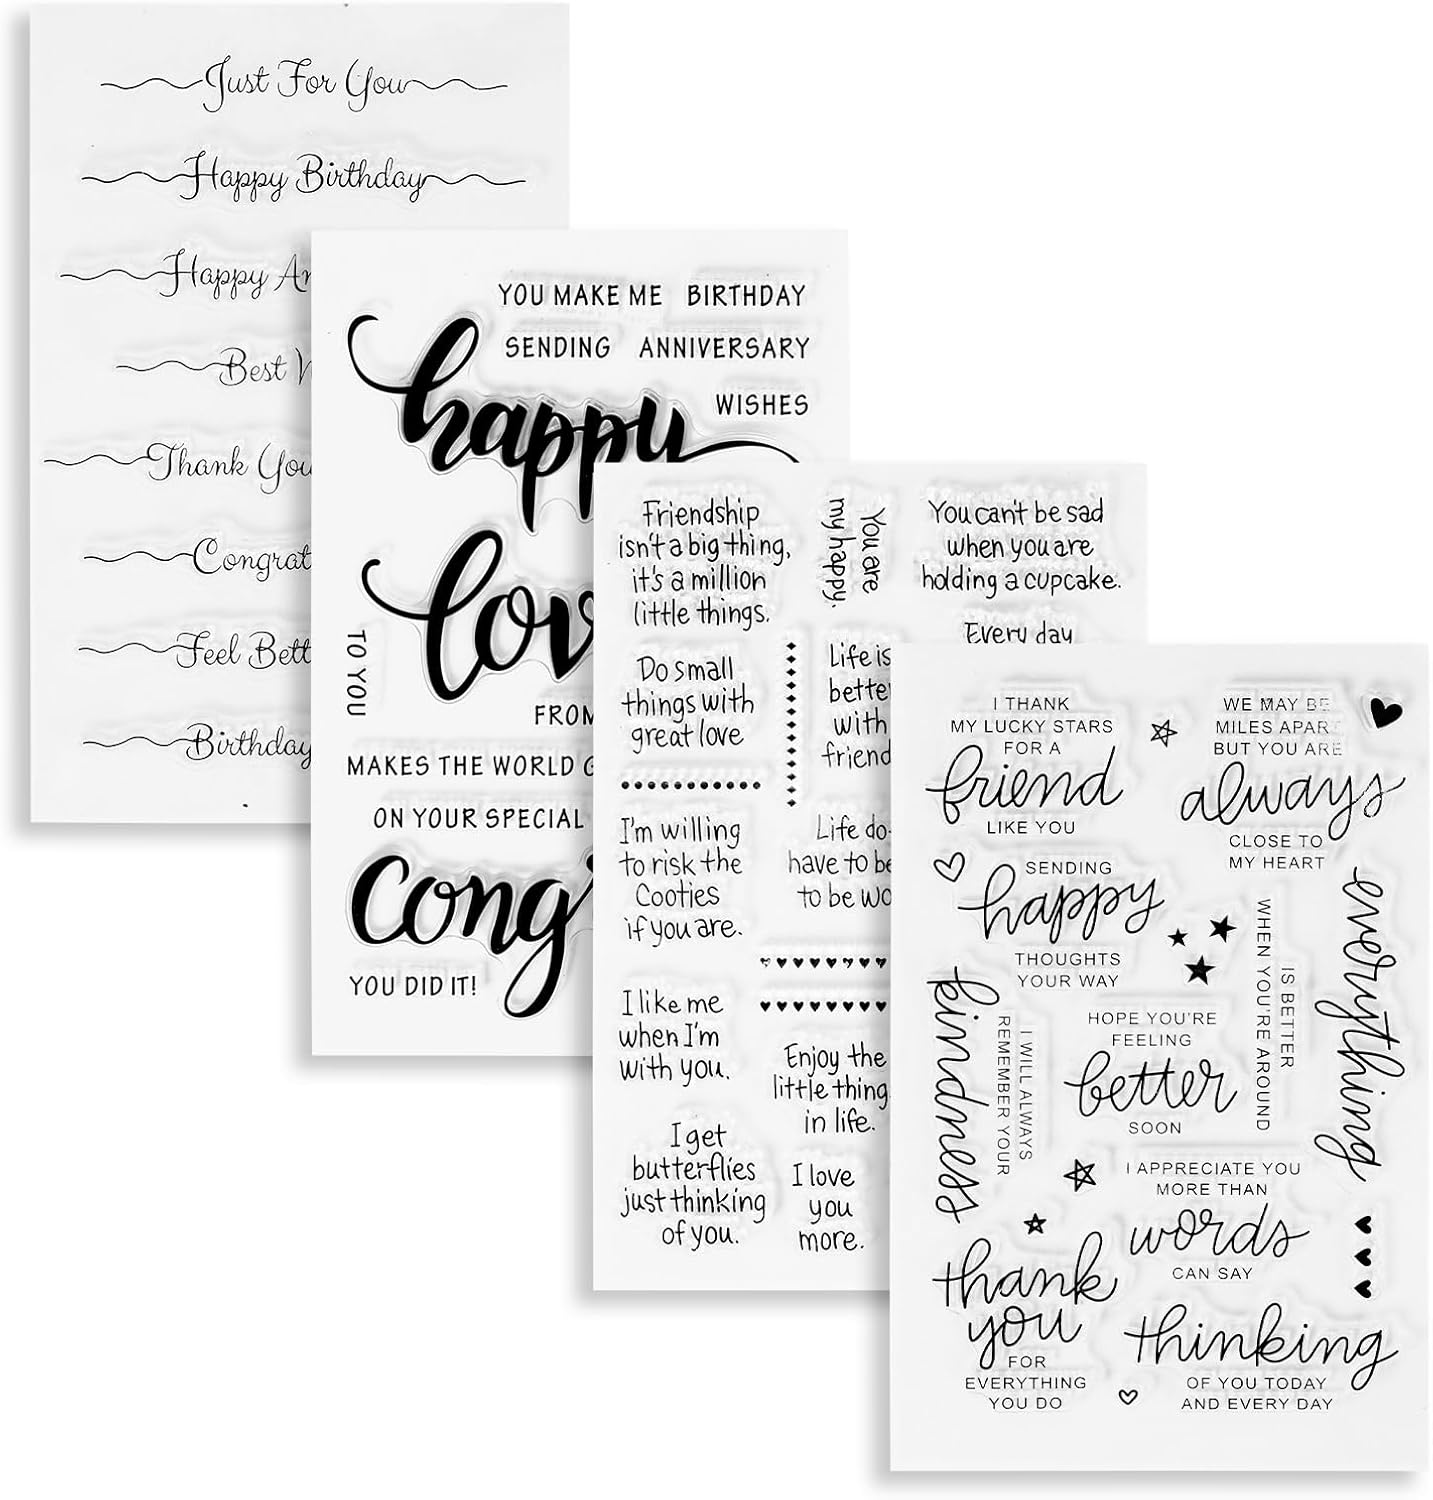 Just For You
Happy Birthday
Happy
Best
Thank You
Feel
Birthday
YOU MAKE ME BIRTHDAY
SENDING ANNIVERSARY
WISHES
happy
TO YOU
FROM
MAKES THE WORLD
ON YOUR SPECIAL
YOU DID IT!
Friendship
isn't a big thing,
it's a million
little things.
You are
my happy.
You can't be sad
when you are
holding a cupcake.
Every day
Do small
things with
great love
Life is
with
I'm willing
to risk the
Cooties
if you are.
Life
have to
to be
I like me
when I'm
with you.
Enjoy the
little thing
in life.
I get
butterflies
just thinking
of you.
I love
you
more.
I THANK
MY LUCKY STARS
FOR A
friend
LIKE YOU
WE MAY BE
MILES APART
BUT YOU ARE
always
CLOSE TO
MY HEART
SENDING
happy
THOUGHTS
YOUR WAY
everything
IS BETTER
WHEN YOU'RE AROUND
I WILL ALWAYS
REMEMBER YOUR
kindness
HOPE YOU'RE
FEELING
better
SOON
I APPRECIATE YOU
MORE THAN
words
CAN SAY
thank
you
FOR
EVERYTHING
YOU DO
thinking
OF YOU TODAY
AND EVERY DAY